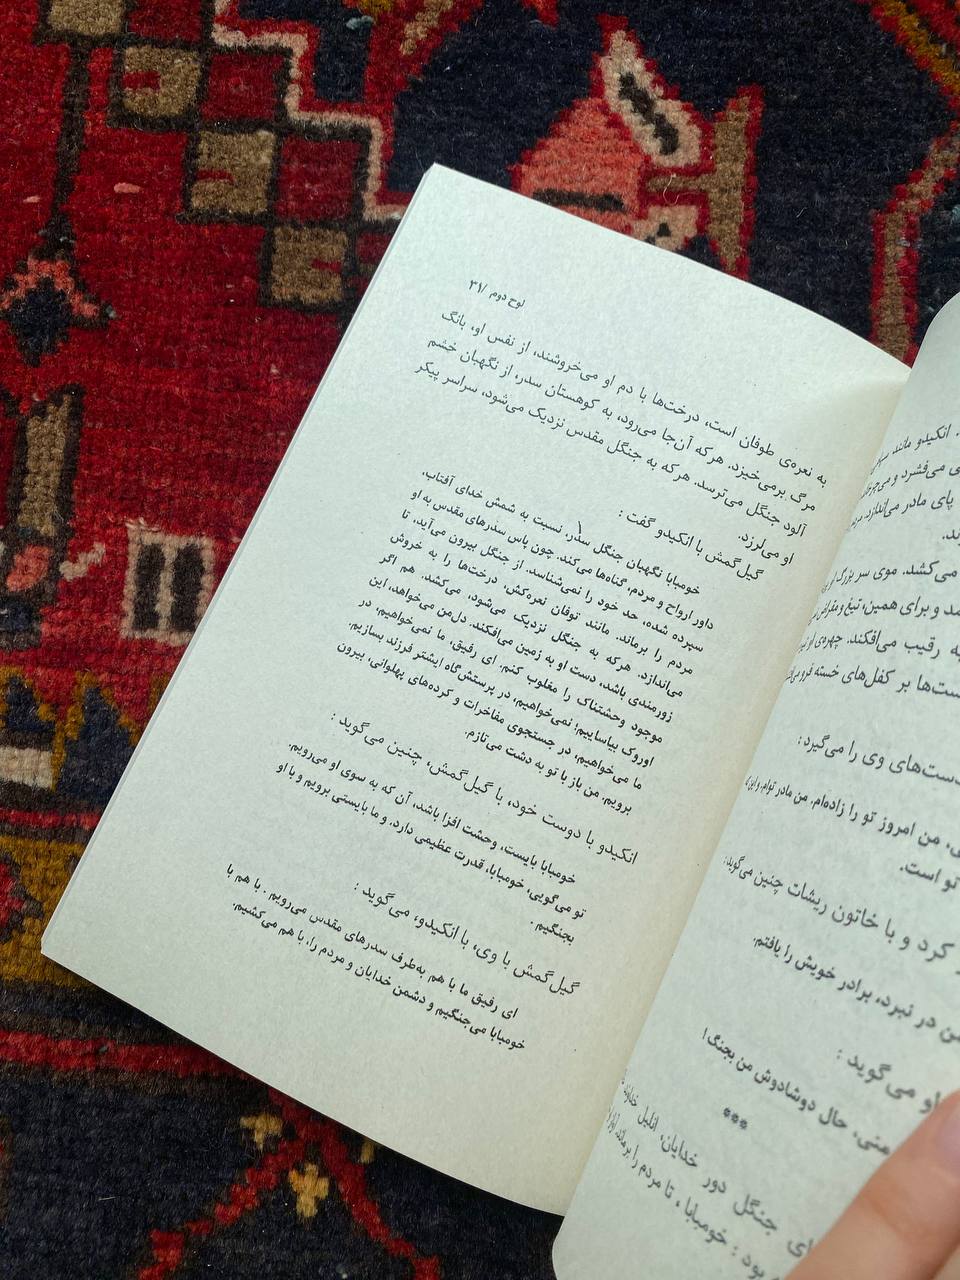 لوح دوم /۳۱
به نعره‌ی طوفان است، درخت‌ها با دم او می‌خروشند، از نفس او، بانگ
مرگ برمی‌خیزد. هرکه آن‌جا می‌رود، به کوهستان سدر، از نگهبان خشم
آلود جنگل می‌ترسد. هر که به جنگل مقدس نزدیک می‌شود، سراسر پیکر
او می‌لرزد.
گیل‌گمش با انکیدو گفت :
خومبابا نگهبان جنگل سدر، نسبت به شمش خدای آفتاب،
داور ارواح و مردم، گناه‌ها می‌کند. چون پاس سدرهای مقدس به او
سپرده شده، حد خود را نمی‌شناسد. از جنگل بیرون می‌آید، تا
مردم را برماند. مانند توفان نعره‌کش، درخت‌ها را به خروش
می‌اندازد. هرکه به جنگل نزدیک می‌شود، می‌کشد. هم اگر
زورمندی باشد، دست او به زمین می‌افکند. دل‌من می‌خواهد، این
موجود وحشتناک را مغلوب کنم. ای رفیق، ما نمی‌خواهیم، در
اوروک بیاساییم؛ نمی‌خواهیم، در پرستش‌گاه ایشتر فرزند بسازیم.
ما می‌خواهیم، در جستجوی مفاخرات و کرده‌های پهلوانی، بیرون
برویم. من باز با تو به دشت می‌تازم.
انکیدو با دوست خود، با گیل‌گمش، چنین می‌گوید :
خومبابا بایست، وحشت افزا باشد، آن که به سوی او می‌رویم.
تو می‌گویی، خومبابا، قدرت عظیمی دارد. و ما بایستی برویم و با او
بجنگیم .
گیل‌گمش با وی، با انکیدو، می‌گوید :
ای رفیق ما با هم به‌طرف سدرهای مقدس می‌رویم . با هم با
خومبابا می‌جنگیم و دشمن خدایان و مردم را، با هم می‌کشیم.
انکیدو مانند
می‌فشرد و
پای مادر می‌اندازد.
می‌کشد. موی سر بزرگ او
و برای همین، تیغ و
به رقیب می‌افکند. چهره‌ی او
بر کفل‌های خسته
دست‌های وی را می‌گیرد :
من امروز تو را زاده‌ام. من مادر توام،
تو است.
کرد و با خاتون ریشات چنین می‌گوید:
در نبرد، برادر خویش را یافتم.
او می‌گوید :
منی، حال دوشادوش من بجنگ!
***
جنگل دور خدایان، انلیل
بود : خومبابا ، تا مردم را برماند.